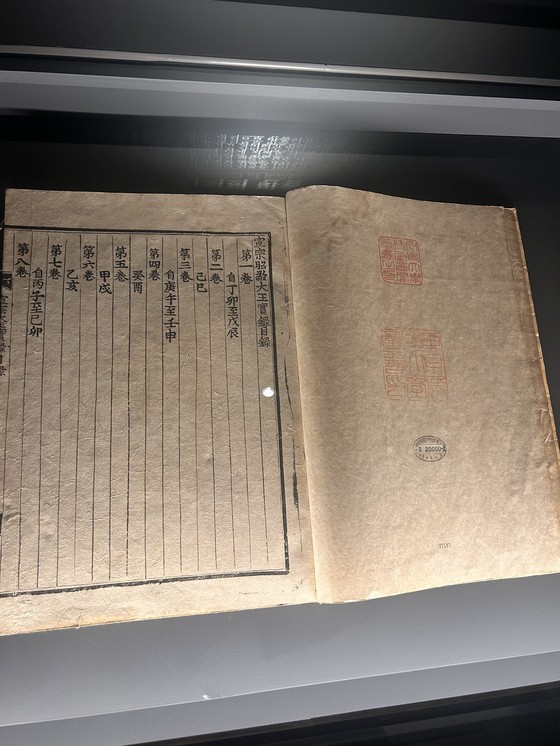 宣宗昭敬大王實錄目錄
第一卷
自丁卯至戊辰
第二卷
己巳
第三卷
自庚午至壬申
第四卷
癸酉
第五卷
甲戌
第六卷
乙亥
第七卷
自丙子至己卯
第八卷